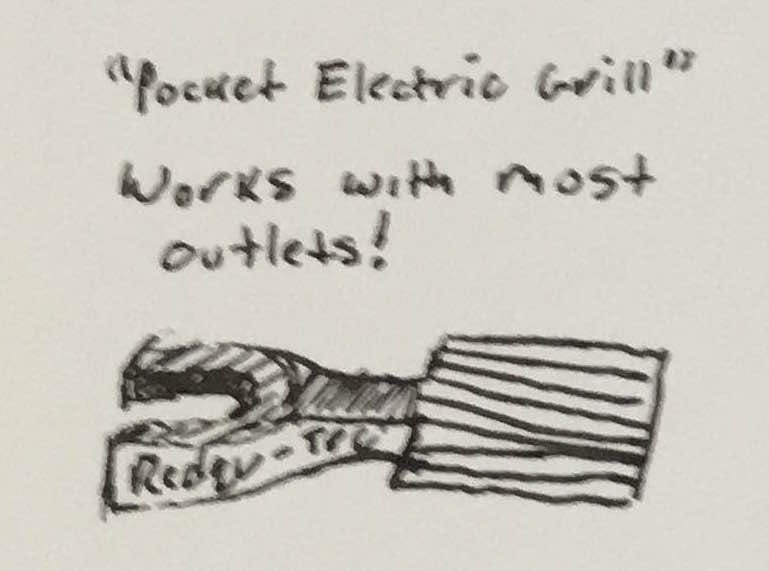 "Pocket Electric Grill"
Works with most
outlets!